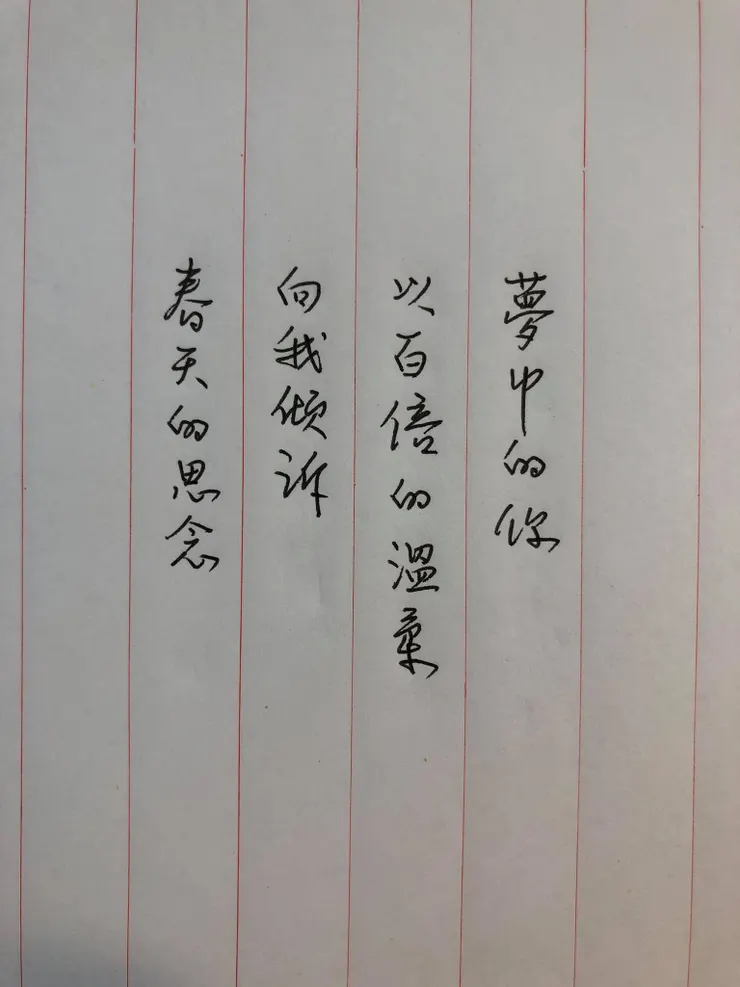 夢中的你
以百倍的溫柔
向我倾诉
春天的思念